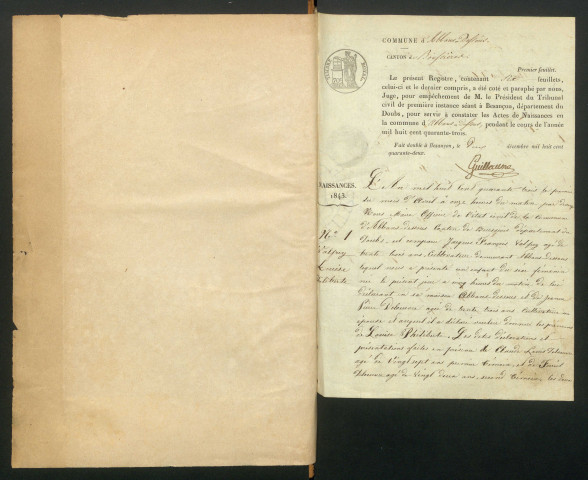 COMMUNE d'Abbans Dessus
CANTON de Boussières
Premier feuillet.
Le présent Registre, contenant feuillets,
celui-ci et le dernier compris, a été coté et paraphé par nous,
Juge, pour empêchement de M. le Président du Tribunal
civil de première instance séant à Besançon, département du
Doubs, pour servir à constater les Actes de Naissances en
la commune d'Abbans Dessus, pendant le cours de l'année
mil huit cent quarante-trois.
Fait double à Besançon, le décembre mil huit cent
quarante-deux.
NAISSANCES.
1843.
N° 1
Valfrey
Louise
Philiberte
L'An mil huit cent quarante trois le premier
du mois d'Avril à onze heures du matin par devant
Nous Maire Officier de l'état civil de la commune
d'Abbans dessus Canton de Boussières département du
Doubs, est comparu Jacques François agé de
trente trois ans Cultivateur demeurant Abbans dessus
lequel nous a présenté un enfant du sexe féminin
né le présent jour à heures du matin de lui
Déclarant en sa maison Abbans dessus et de Jeanne
Pierre agée de trente trois ans Cultivatrice son
épouse et auquel il a déclaré vouloir donner les prénoms
de Louise Philiberte. Les dites déclarations et
présentations faites en présence de Claude Louis
agé de vingt sept ans premier témoin, et de
agé de vingt deux ans, second témoin, les deux